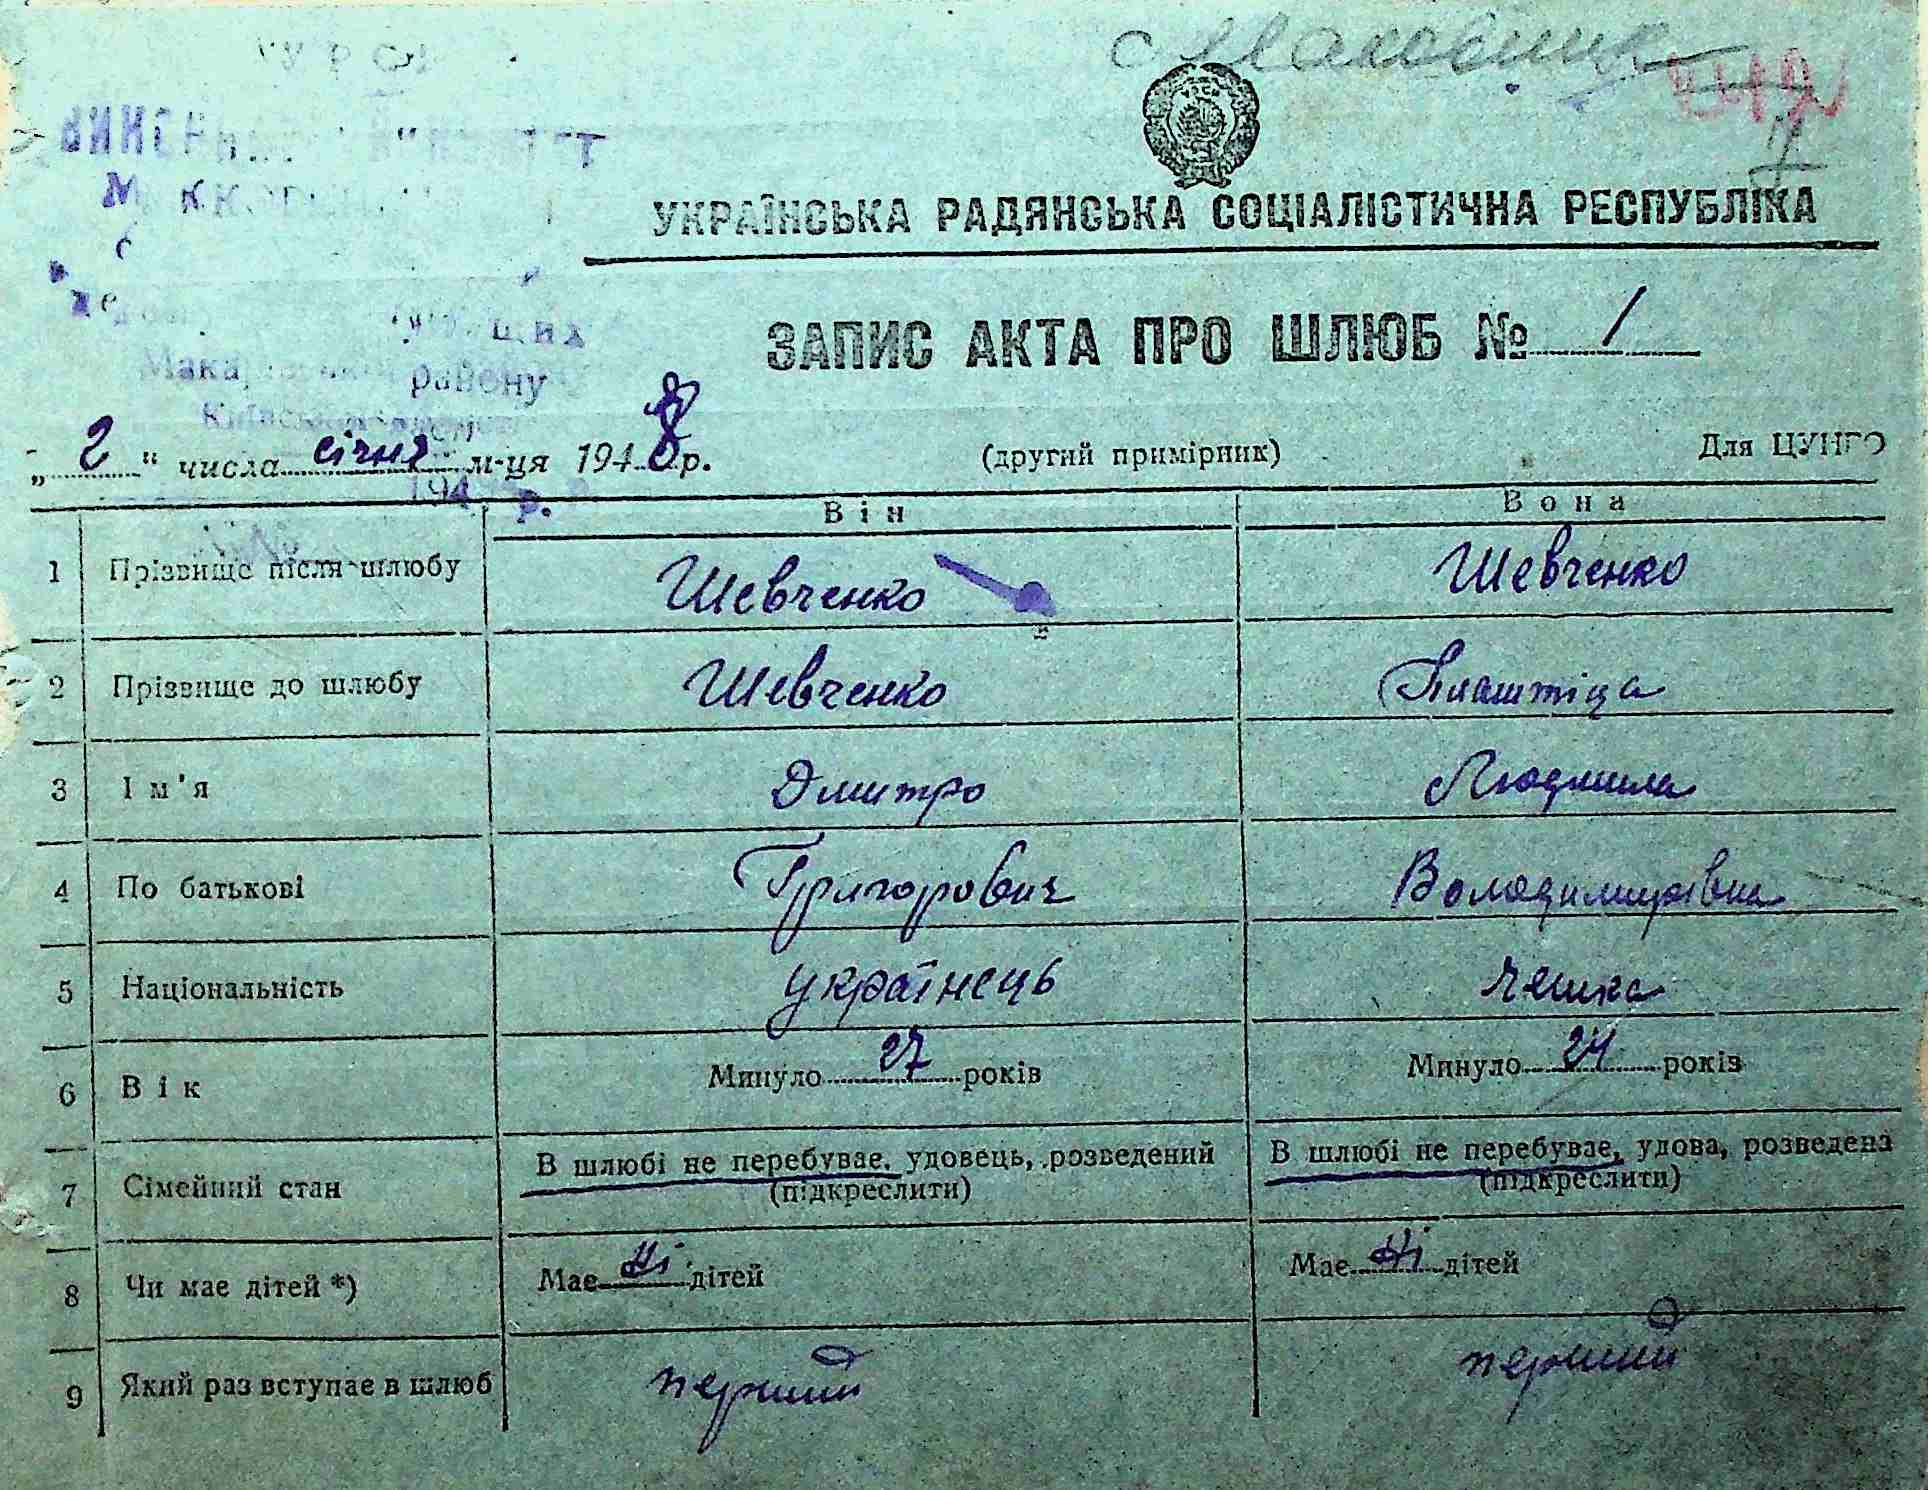 УКРАЇНСЬКА РАДЯНСЬКА СОЦІАЛІСТИЧНА РЕСПУБЛІКА
ЗАПИС АКТА ПРО ШЛЮБ № 1
щих
району
„2" числа січня м-ця 1948 р. (другий примірник) Для ЦУНГО
194 р.
Він Вона
1 Прізвище після шлюбу Шевченко Шевченко
2 Прізвище до шлюбу Шевченко
3 Ім'я Дмитро Людмила
4 По батькові Григорович Володимирівна
5 Національність українець чешка
6 Вік Минуло 27 років Минуло 24 років
7 Сімейний стан В шлюбі не перебуває, удовець, розведений В шлюбі не перебуває, удова, розведена
(підкреслити) (підкреслити)
8 Чи має дітей *) Має ні дітей Має ні дітей
9 Який раз вступає в шлюб перший перший